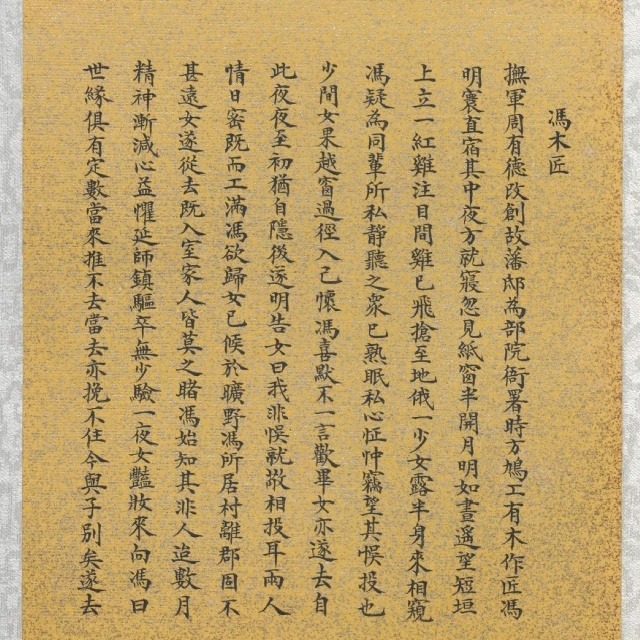 馮木匠
撫軍周有德改創故藩邸為部院衙署時方鳩工有木作匠馮
明寰直宿其中夜方就寢忽見紙窗半開月明如晝遙望短垣
上立一紅雞注目間雞已飛搶至地俄一少女露半身來相窺
馮疑為同輩所私靜聽之衆已熟眠私心怔忡竊望其悮投也
少間女果越窗過徑入己懷馮喜默不一言歡畢女亦遂去自
此夜夜至初猶自隱後遂明告女曰我非悮就敬相投耳兩人
情日密既而工滿馮欲歸女已候於曠野馮所居村離郡固不
甚遠女遂從去既入室家人皆莫之睹馮始知其非人迨數月
精神漸減心益懼延師鎮驅卒無少驗一夜女豔妝來向馮曰
世緣俱有定數當來推不去當去亦挽不住今與子別矣遂去